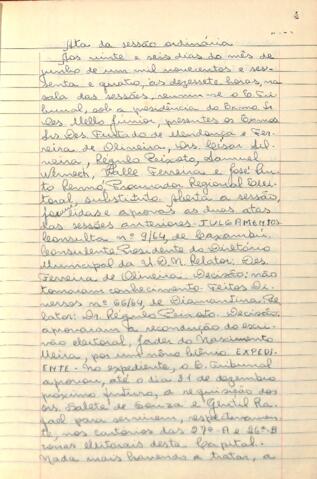 Ata da sessão ordinária
Aos vinte e seis dias do mês de
junho de um mil novecentos e ses-
senta e quatro, às dezessete horas, na
sala das sessões, reuniu-se o E. Tri-
bunal, sob a presidência do Exmo. Sr.
Des. Mello Júnior, presentes os Exmos
Srs. Des. Furtado de Mendonça e Fer-
reira de Oliveira, Drs. César Sil-
veira, Régulo Peixoto, Samuel
Werneck, Valle Ferreira e José
Procurador Regional Elei-
toral, substituto. Aberta a sessão,
foram lidas e aprovadas as duas atas
das sessões anteriores. JULGAMENTOS
Consulta nº 9/64, de
Consulente: Presidente do Diretório
Municipal da U.D.N. Relator: Des.
Ferreira de Oliveira. Decisão: não
tomaram conhecimento. Feitos Di-
versos nº 66/64, de Diamantina. Re-
lator: Dr. Régulo Peixoto. Decisão:
aprovaram a recondução do escri-
vão eleitoral, Jader do Nascimento
Meira, por um nôvo biênio. EXPEDI-
ENTE - No expediente, o E. Tribunal
aprovou, até o dia 31 de dezembro
próximo futuro, a requisição dos
srs. Salete de Souza e Gentil Ra-
fael para servirem, respectivamen-
te, nos cartórios das 27ª-A e 26ª-B
zonas eleitorais desta Capital.
Nada mais havendo a tratar, o